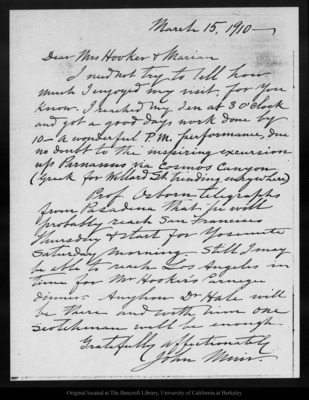 March 15, 1910 —
Dear Mrs Hooker & Marian
I need not try to tell how
much I enjoyed my visit, for you
know. I reached my den at 3 o'clock
and got a good days work done by
10 - a wonderful P.M. performance, due
no doubt to the inspiring excursion
up Parnassus via Cosmos Canyon
(Greek for Willard St. winding anywhere)
Prof. Osborn telegraphs
from Pasadena that he will
probably reach San Francisco
Thursday & start for Yosemite
Saturday morning. Still I may
be able to reach Los Angeles in
time for Mr Hooker's Carnegie
dinner. Anyhow Dr Hale will
be there and with him one
scotchman will be enough.
Gratefully affectionately
John Muir.
Original located at The Bancroft Library, University of California at Berkeley